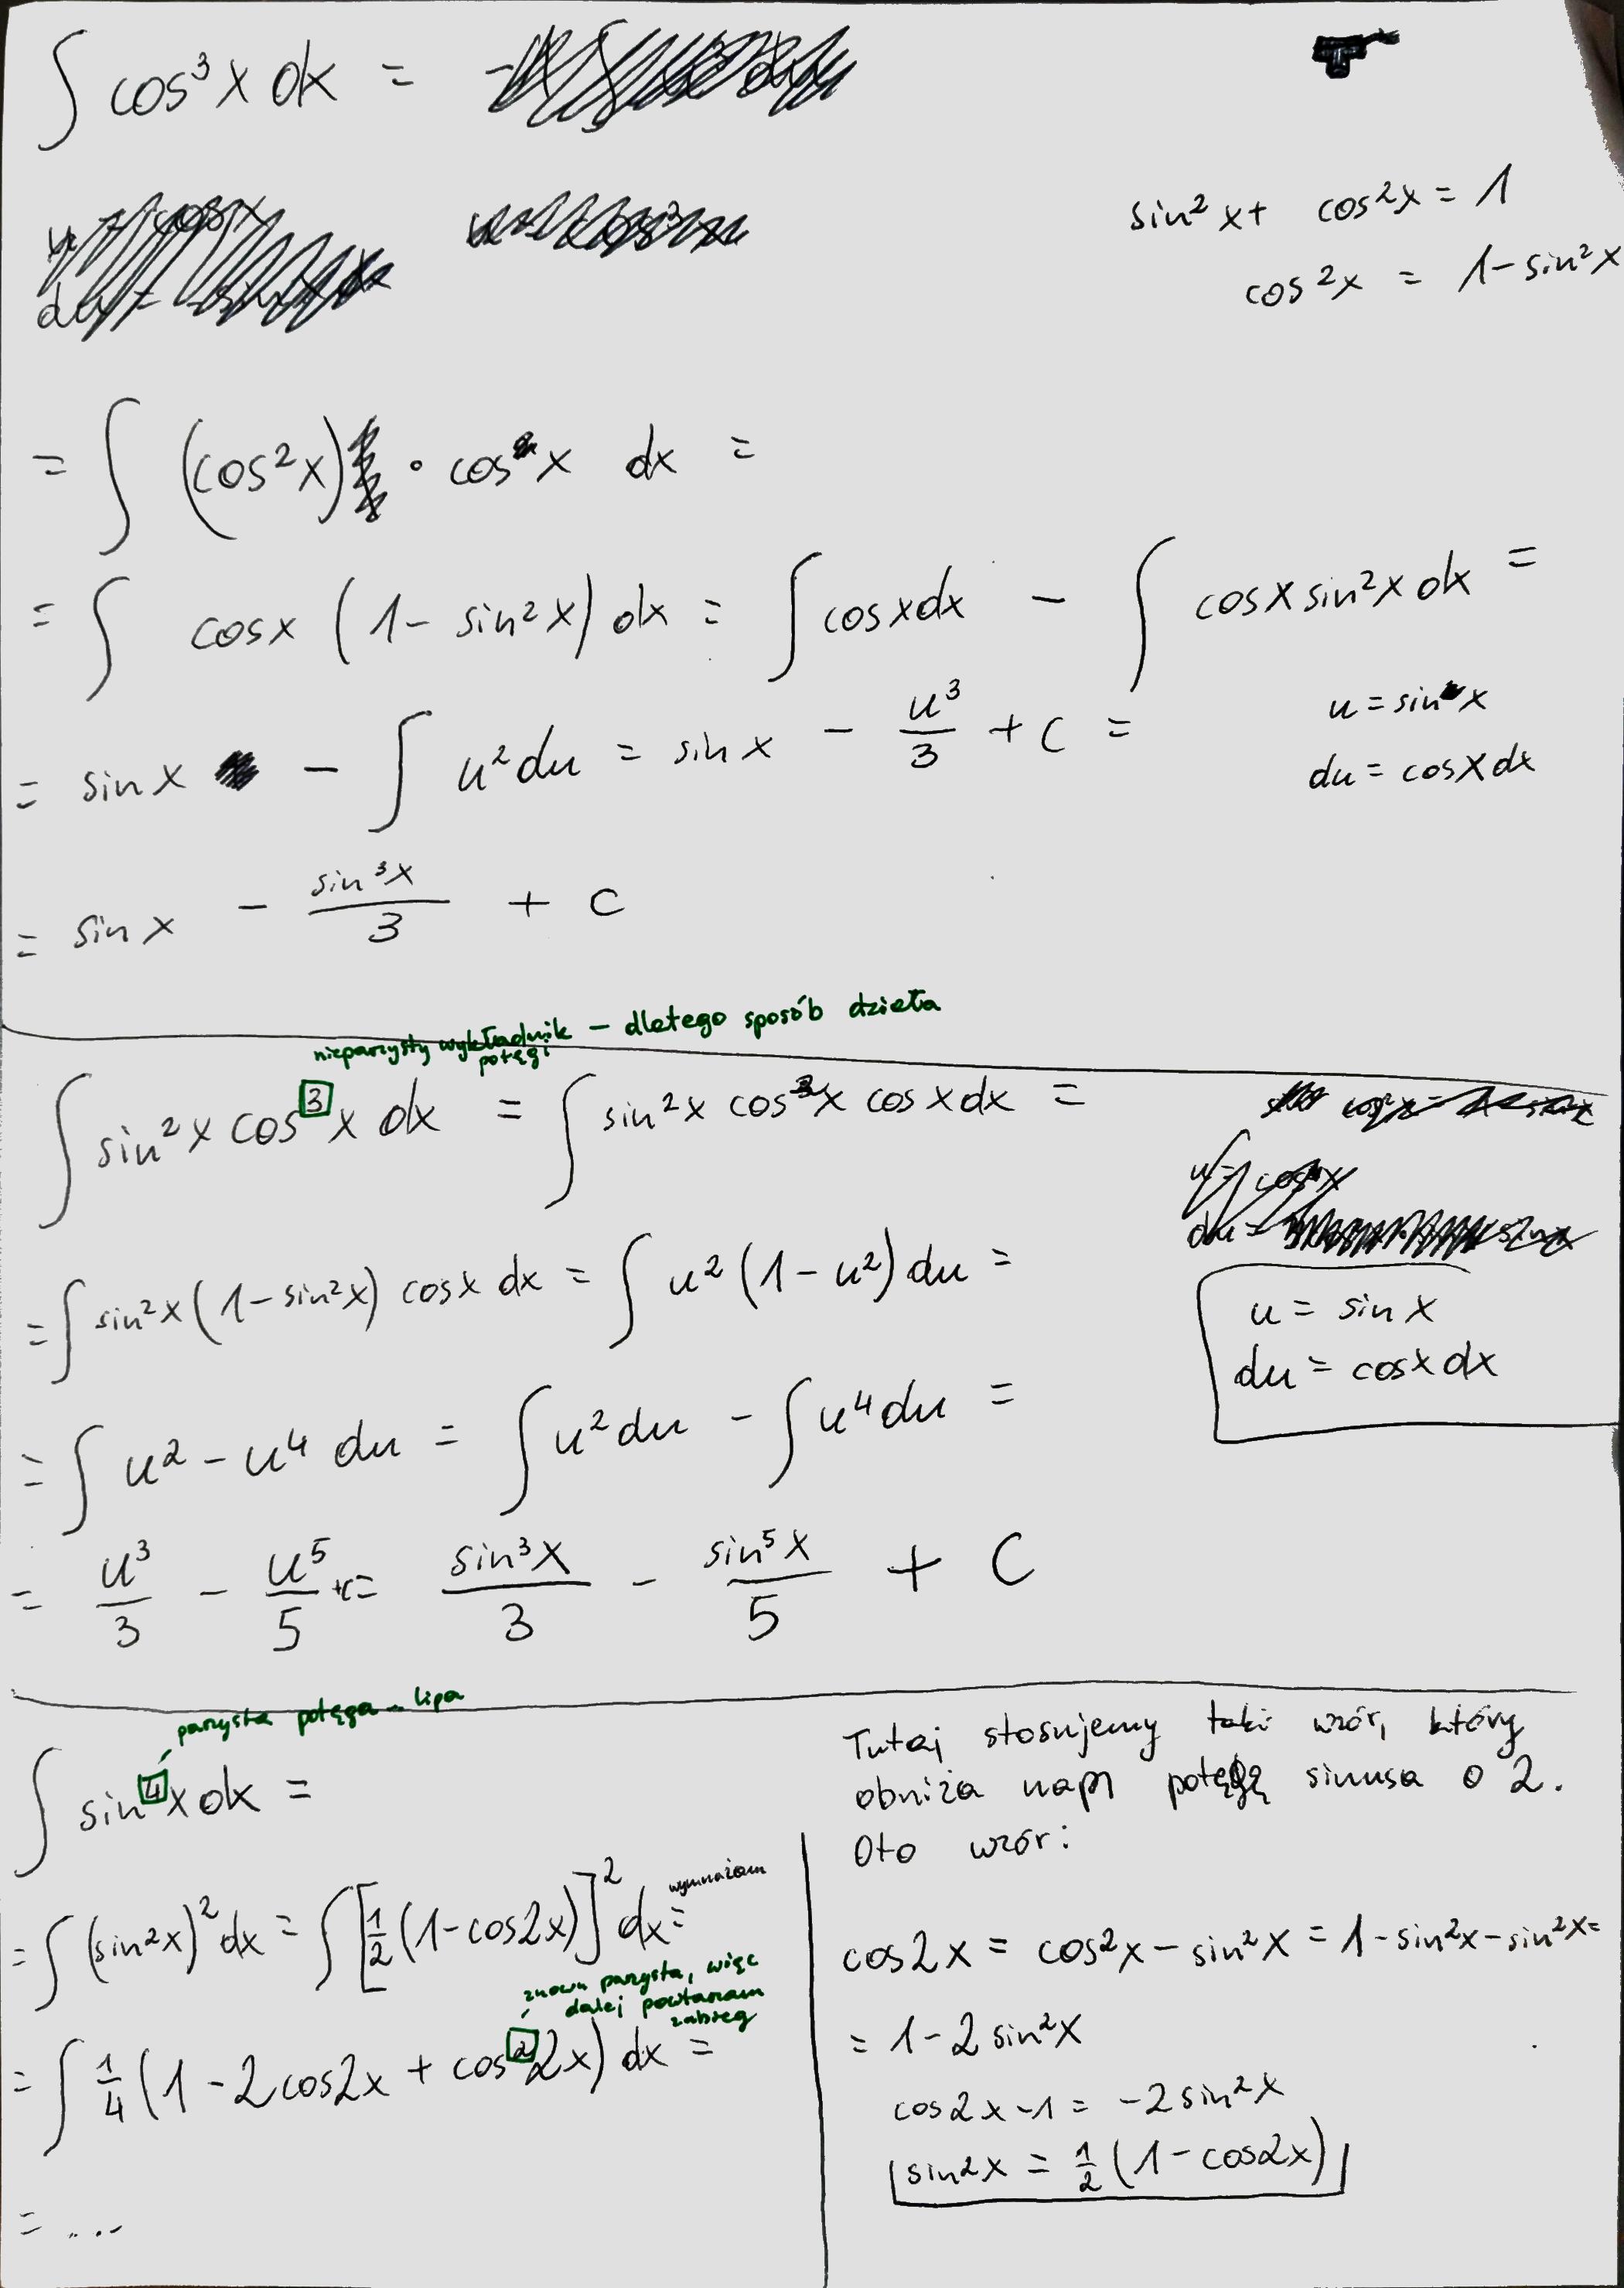 ∫ cos³x dx =
sin²x + cos²x = 1
cos²x = 1 - sin²x
= ∫ (cos²x) · cos x dx =
= ∫ cosx (1 - sin²x) dx = ∫ cosxdx - ∫ cosx sin²x dx =
= sinx - ∫ u²du = sinx - u³/3 + C =
u = sin x
du = cosxdx
= sinx - sin³x/3 + C
nieparzysty wykładnik - dlatego sposób dzieła
potęgi
∫ sin²x cos³x dx = ∫ sin²x cos²x cosxdx =
= ∫ sin²x (1 - sin²x) cosx dx = ∫ u² (1 - u²) du =
u = sinx
du = cosxdx
= ∫ u² - u⁴ du = ∫ u²du - ∫ u⁴du =
= u³/3 - u⁵/5 + c = sin³x/3 - sin⁵x/5 + C
parzysta potęga - lipa
∫ sin⁴x dx =
= ∫ (sin²x)² dx = ∫ [½(1-cos2x)]² dx =
wymnażam
znowu parzysta, więc
dalej powtarzam
zabieg
= ∫ ¼ (1 - 2cos2x + cos²2x) dx =
= ...
Tutaj stosujemy taki wzór, który
obniża nam potęgę sinusa o 2.
Oto wzór:
cos2x = cos²x - sin²x = 1 - sin²x - sin²x =
= 1 - 2sin²x
cos2x - 1 = -2sin²x
sin²x = ½ (1 - cos2x)